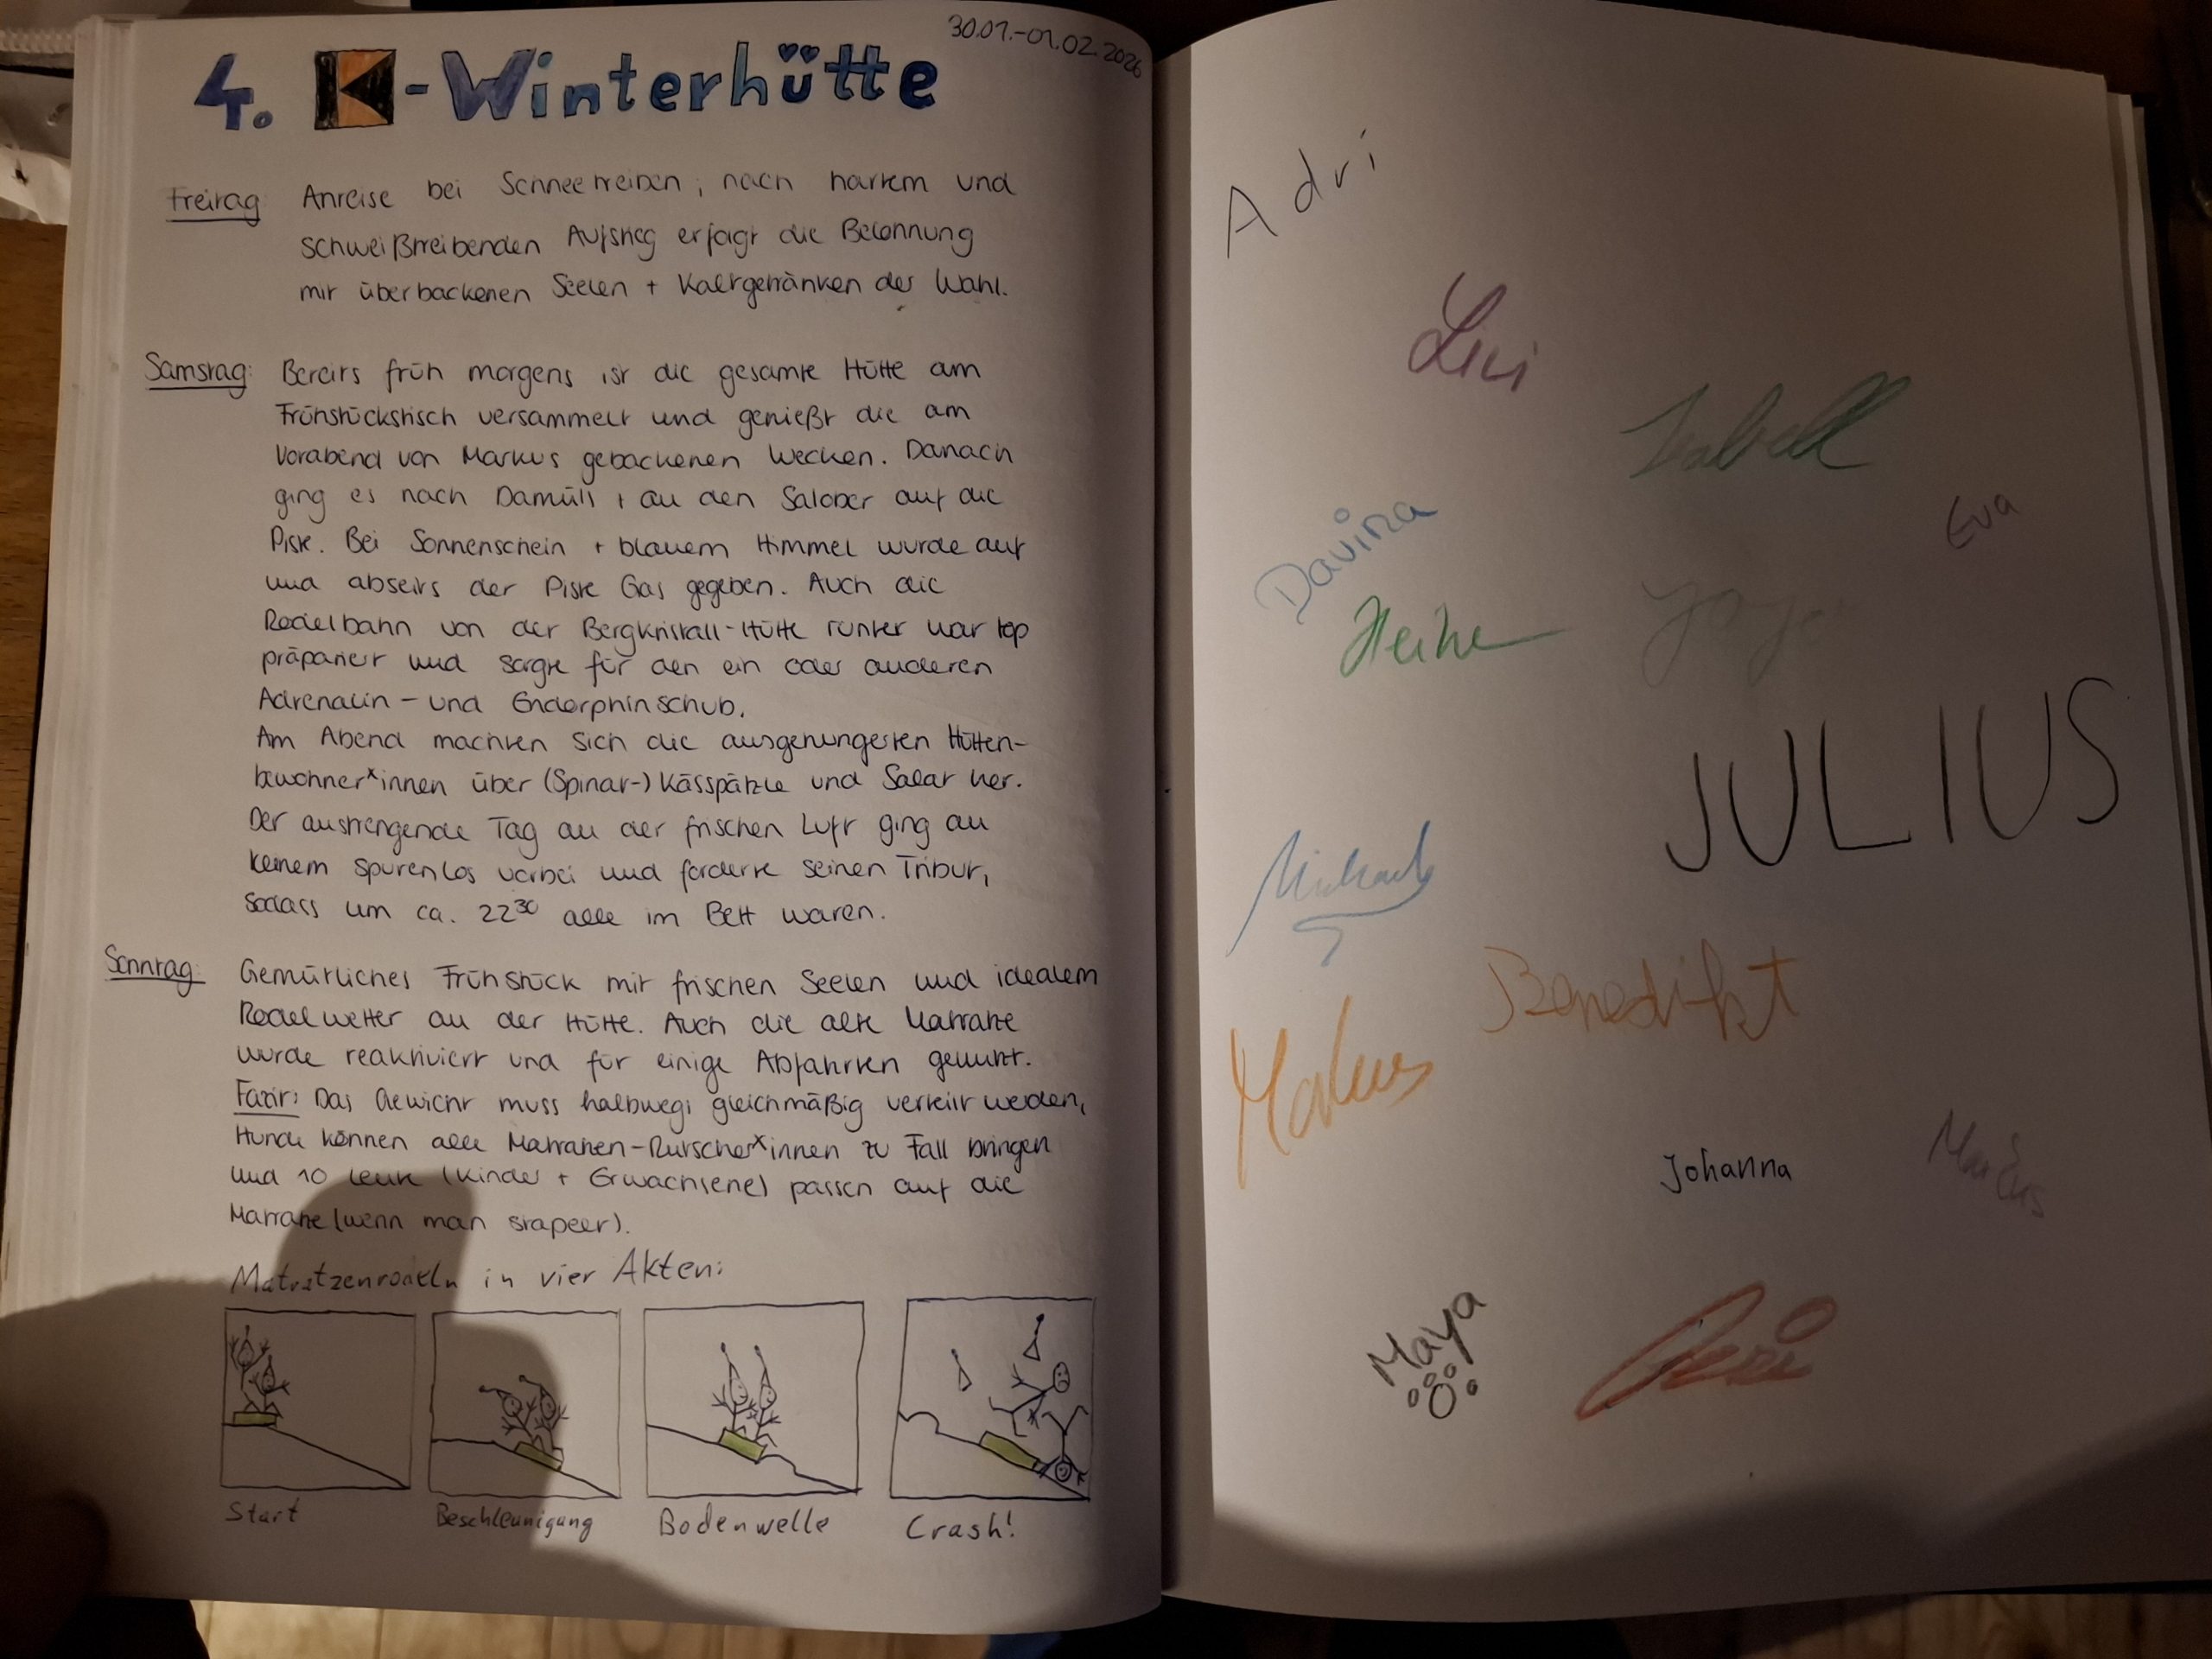 30.01.-01.02.2026
4. K-Winterhütte
Freitag: Anreise bei Schneetreiben; nach hartem und
schweißtreibenden Aufstieg erfolgt die Belohnung
mit überbackenen Seelen + Kaltgetränken der Wahl.
Samstag: Bereits früh morgens ist die gesamte Hütte am
Frühstückstisch versammelt und genießt die am
Vorabend von Markus gebackenen Wecken. Danach
ging es nach Damüls + an den Salober auf die
Piste. Bei Sonnenschein + blauem Himmel wurde auf
und abseits der Piste Gas gegeben. Auch die
Rodelbahn von der Bergkristall-Hütte runter war top
präpariert und sorgte für den ein oder anderen
Adrenalin- und Endorphinschub.
Am Abend machten sich die ausgehungerten Hütten-
bewohner*innen über (Spinat-) Kässpätzle und Salat her.
Der anstrengende Tag an der frischen Luft ging an
keinem spurenlos vorbei und forderte seinen Tribut,
sodass um ca. 22³⁰ alle im Bett waren.
Sonntag: Gemütliches Frühstück mit frischen Seelen und idealem
Rodelwetter an der Hütte. Auch die alte Matratze
wurde reaktiviert und für einige Abfahrten genutzt.
Fazit: Das Gewicht muss halbwegs gleichmäßig verteilt werden,
Hunde können alle Matratzen-Rutscher*innen zu Fall bringen
und 10 Leute (Kinder + Erwachsene) passen auf die
Matratze (wenn man stapelt).
Matratzenrodeln in vier Akten:
Start
Beschleunigung
Bodenwelle
Crash!
Adri
Isabell
Davina
Eva
Heike
Jojo
JULIUS
Michael
Benedikt
Markus
Johanna
Marius
Maya